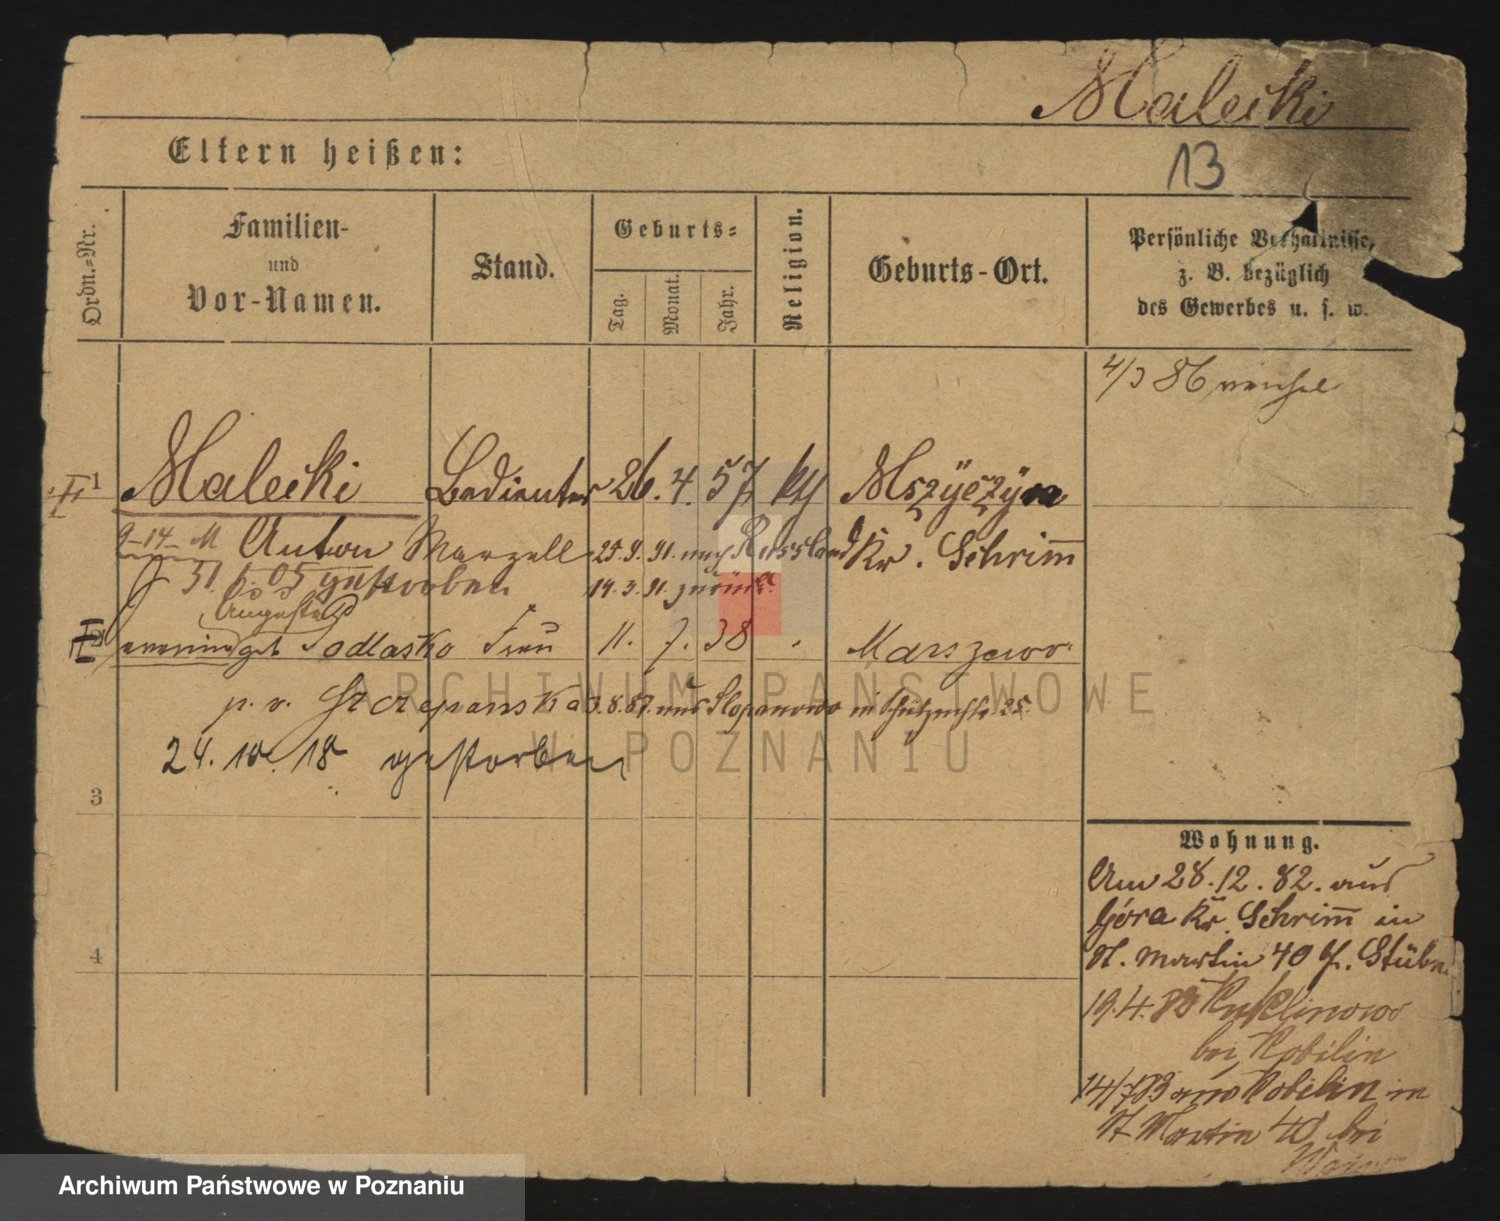 Malecki
13
Eltern heißen:
Ordn.=Nr.
Familien-
und
Vor-Namen.
Stand.
Geburts=
Tag.
Monat.
Jahr.
Religion.
Geburts-Ort.
Persönliche Verhältnisse,
z. B. bezüglich
des Gewerbes u. s. w.
4/3 86
1 Malecki Bedienter 26. 4. 57 kth Mszyczyn
Anton Marzell 25.9.91. nach Russland Kr. Schrimm
31. 5. 05 gestorben 14.3.91. zurück.
Augusta
II geb Podlaska Frau 11. 7. 38 Marszewo
p. v. Szczepanska 3.8.87. aus Slopanowo in Schützenstr 25.
24. 10. 18 gestorben
3
4
Wohnung.
Am 28.12.82. aus
Góra Kr. Schrimm in
St. Martin 40 Stübn
19.4. Kuklinowo
bei Kobilin
14/7 83 aus Kobilin in
St Martin 40 bei
ARCHIWUM PAŃSTWOWE
W POZNANIU
Archiwum Państwowe w Poznaniu